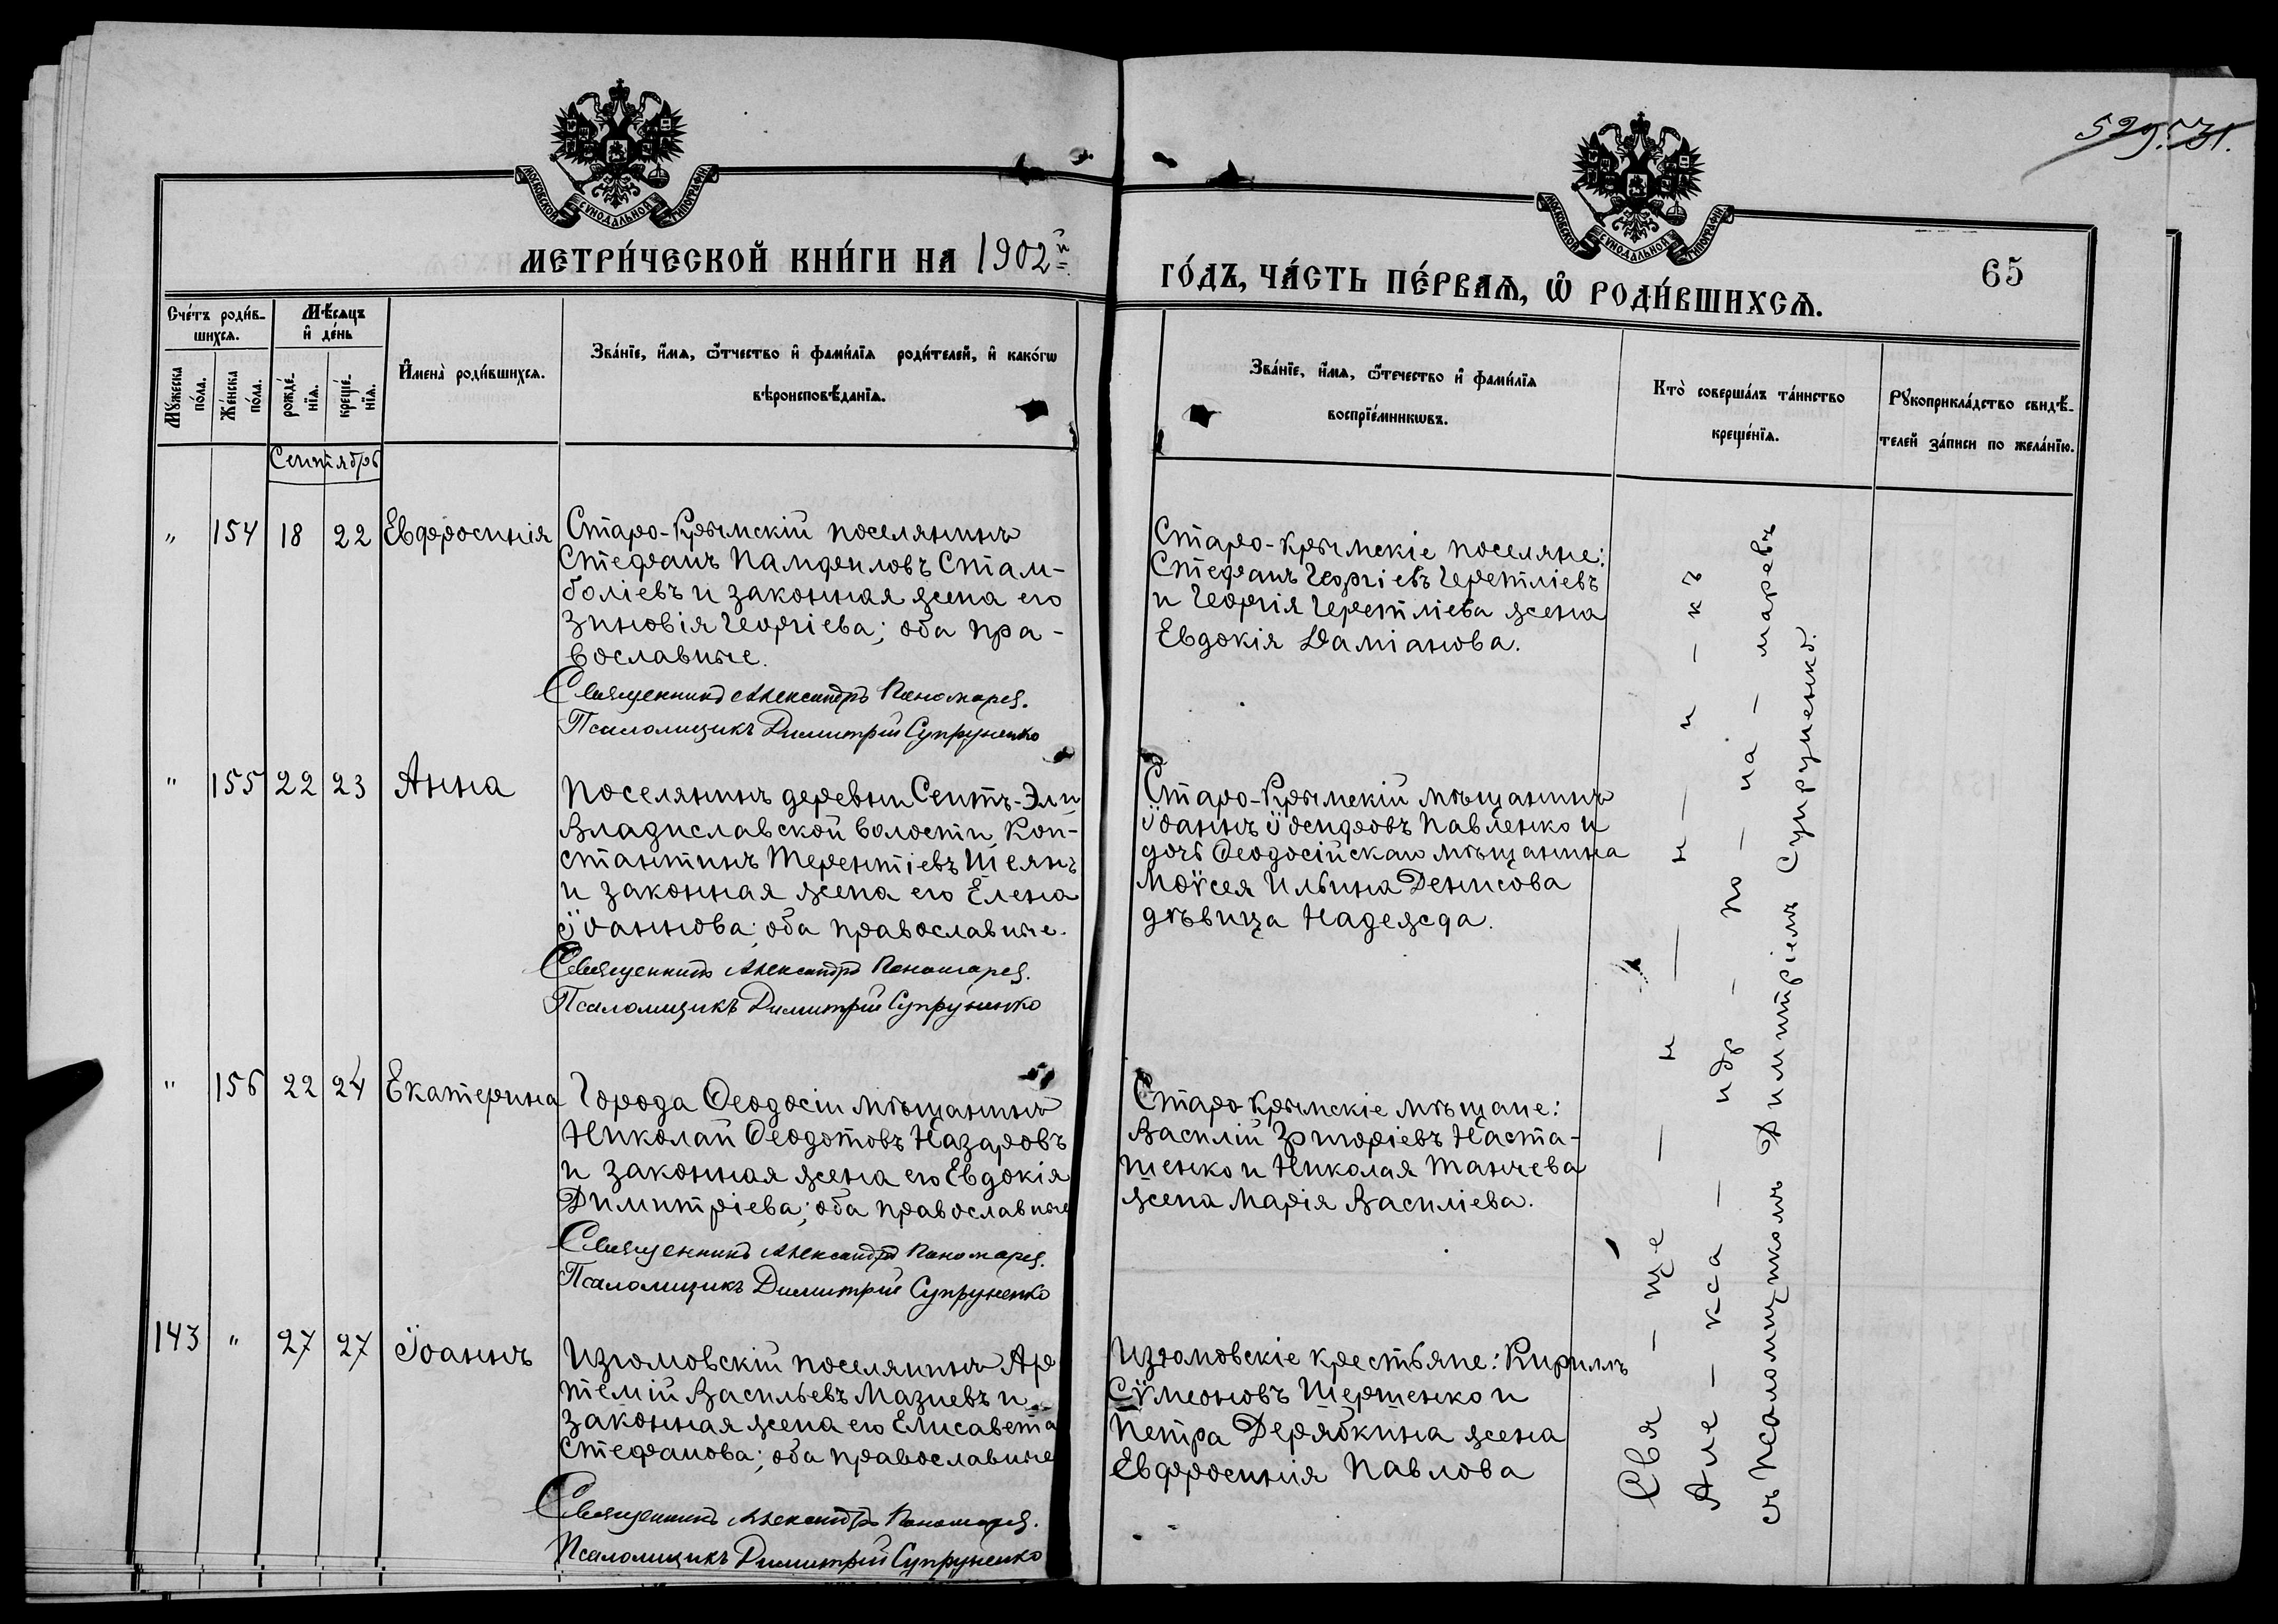 529. 31.
МОСКОВСКОЙ СѴНОДАЛЬНОЙ ТИПОГРАФІИ
МОСКОВСКОЙ СѴНОДАЛЬНОЙ ТИПОГРАФІИ
МЕТРИ́ЧЕСКОЙ КНИ́ГИ НА 1902й
ГО́ДЪ, ЧА́СТЬ ПЕ́РВАѦ, Ѡ҆ РОДИ́ВШИХСѦ.
65
Сче́тъ роди́в-
шихсѧ.
Мꙋ́жеска по́ла.
Же́нска по́ла.
Мѣ́сѧцъ
и҆ де́нь
рожде́-нїѧ.
креще́-нїѧ.
И҆мена̀ роди́вшихсѧ.
Зва́нїе, и҆́мѧ, ѻ҆́тчество и҆ фами́лїѧ роди́телей, и҆ како́гѡ
вѣроисповѣ́данїѧ.
Зва́нїе, и҆́мѧ, ѻ҆́течество и҆ фами́лїѧ
воспрїе́мникѡвъ.
Кто̀ соверша́лъ та́инство
креще́нїѧ.
Рꙋкоприкла́дство свидѣ́-
телей за́писи по жела́нїю.
Сентябрь
" 154 18 22 Евфросинія
Старо-Крымскій поселянинъ
Стефанъ Памфиловъ Стам-
боліевъ и законная жена его
Зиновія Георгіева; оба пра-
вославные.
Священникъ Александръ Пономарев.
Псаломщикъ Димитрій Супруненко
Старо-Крымскіе поселяне:
Стефанъ Георгіевъ Черетліевъ
и Георгія Черетліева жена
Евдокія Даміанова.
" 155 22 23 Анна
Поселянинъ деревни Сеитъ-Эли
Владиславской волости, Кон-
стантинъ Терентіевъ Шеянъ
и законная жена его Елена
Іоаннова; оба православные.
Священникъ Александръ Пономарев.
Псаломщикъ Димитрій Супруненко
Старо-Крымскій мѣщанинъ
Іоаннъ Іосифовъ Павленко и
дочь Ѳеодосійскаго мѣщанина
Моѵсея Ильина Денисова
дѣвица Надежда.
" 156 22 24 Екатерина
Города Ѳеодосіи мѣщанинъ
Николай Ѳеодотовъ Назаровъ
и законная жена его Евдокія
Димитріева; оба православные
Священникъ Александръ Пономарев.
Псаломщикъ Димитрій Супруненко
Старо Крымскіе мѣщане:
Василій Григоріевъ Наста-
шенко и Николая Танчева
жена Марія Василіева.
143 " 27 27 Іоаннъ
Изюмовскій поселянинъ Ар
темій Васильевъ Мазневъ и
законная жена его Елисавета
Стефанова; оба православные
Священникъ Александръ Пономарев.
Псаломщикъ Димитрій Супруненко
Изюмовскіе крестьяне: Кириллъ
Сѵмеоновъ Шерженко и
Петра Дерябкина жена
Евфросинія Павлова
Свя - ще - н - н - и - къ
Але - кса - ндр - по - на - маревъ
съ псаломщикомъ Димитріемъ Супруненко.